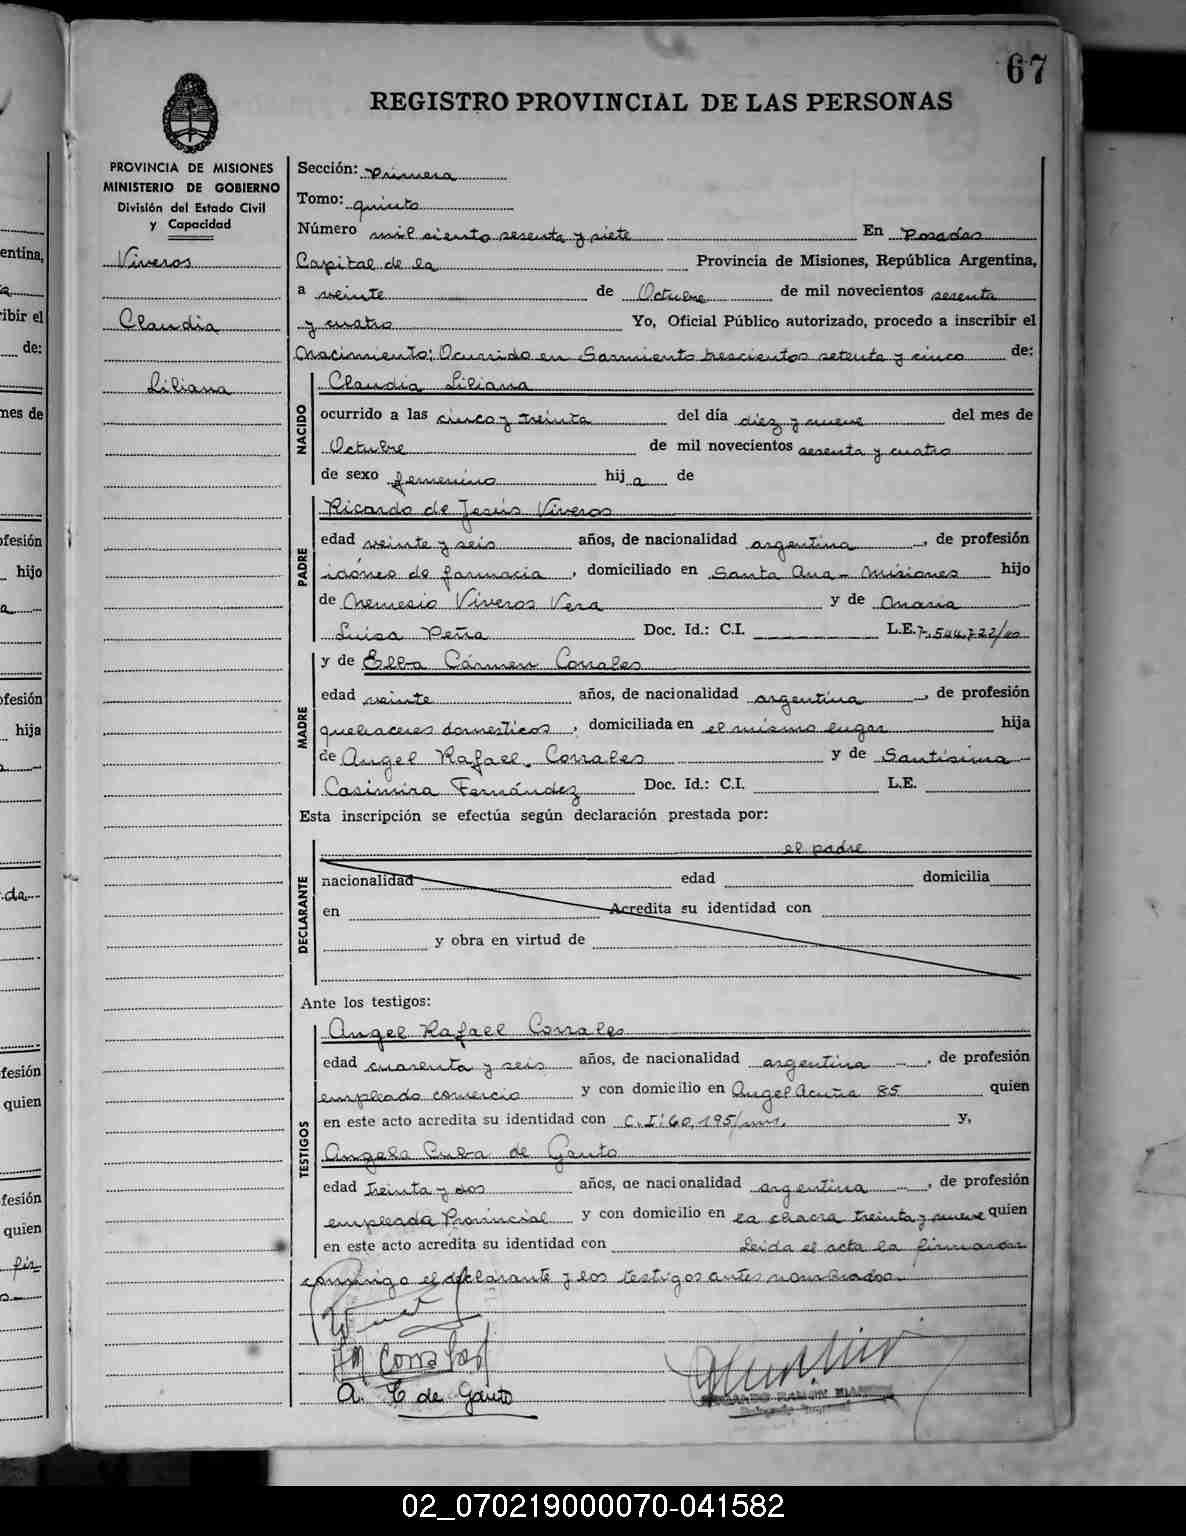 67
REGISTRO PROVINCIAL DE LAS PERSONAS
PROVINCIA DE MISIONES
MINISTERIO DE GOBIERNO
División del Estado Civil
y Capacidad
Viveros
Claudia
Liliana
Sección: Primera
Tomo: quinto
Número mil ciento sesenta y siete En Posadas
Capital de la Provincia de Misiones, República Argentina,
a veinte de Octubre de mil novecientos sesenta
y cuatro Yo, Oficial Público autorizado, procedo a inscribir el
Nacimiento: Ocurrido en Sarmiento trescientos setenta y cinco de:
NACIDO
Claudia Liliana
ocurrido a las cinco y treinta del día diez y nueve del mes de
Octubre de mil novecientos sesenta y cuatro
de sexo femenino hija de
PADRE
Ricardo de Jesús Viveros
edad veinte y seis años, de nacionalidad argentina, de profesión
idóneo de farmacia, domiciliado en Santa Ana - Misiones hijo
de Nemesio Viveros Vera y de María
Luisa Peña Doc. Id.: C.I. L.E. 7.544.722/
MADRE
y de Elba Cármen Corrales
edad veinte años, de nacionalidad argentina, de profesión
quehaceres domesticos, domiciliada en el mismo lugar hija
de Angel Rafael Corrales y de Santísima
Casimira Fernández Doc. Id.: C.I. L.E.
Esta inscripción se efectúa según declaración prestada por:
DECLARANTE
el padre
nacionalidad edad domicilia
en Acredita su identidad con
y obra en virtud de
Ante los testigos:
TESTIGOS
Angel Rafael Corrales
edad cuarenta y seis años, de nacionalidad argentina, de profesión
empleado comercio y con domicilio en Angel Acuña 85 quien
en este acto acredita su identidad con C.I: 60.195/ y,
Angela Cuba de Gauto
edad treinta y dos años, de nacionalidad argentina, de profesión
empleada Provincial y con domicilio en la chacra treinta y nueve quien
en este acto acredita su identidad con Leida el acta la firmaron
conmigo el declarante y los testigos antes nombrados.
Corrales
A. C de Gauto
RAMON
02_070219000070-041582